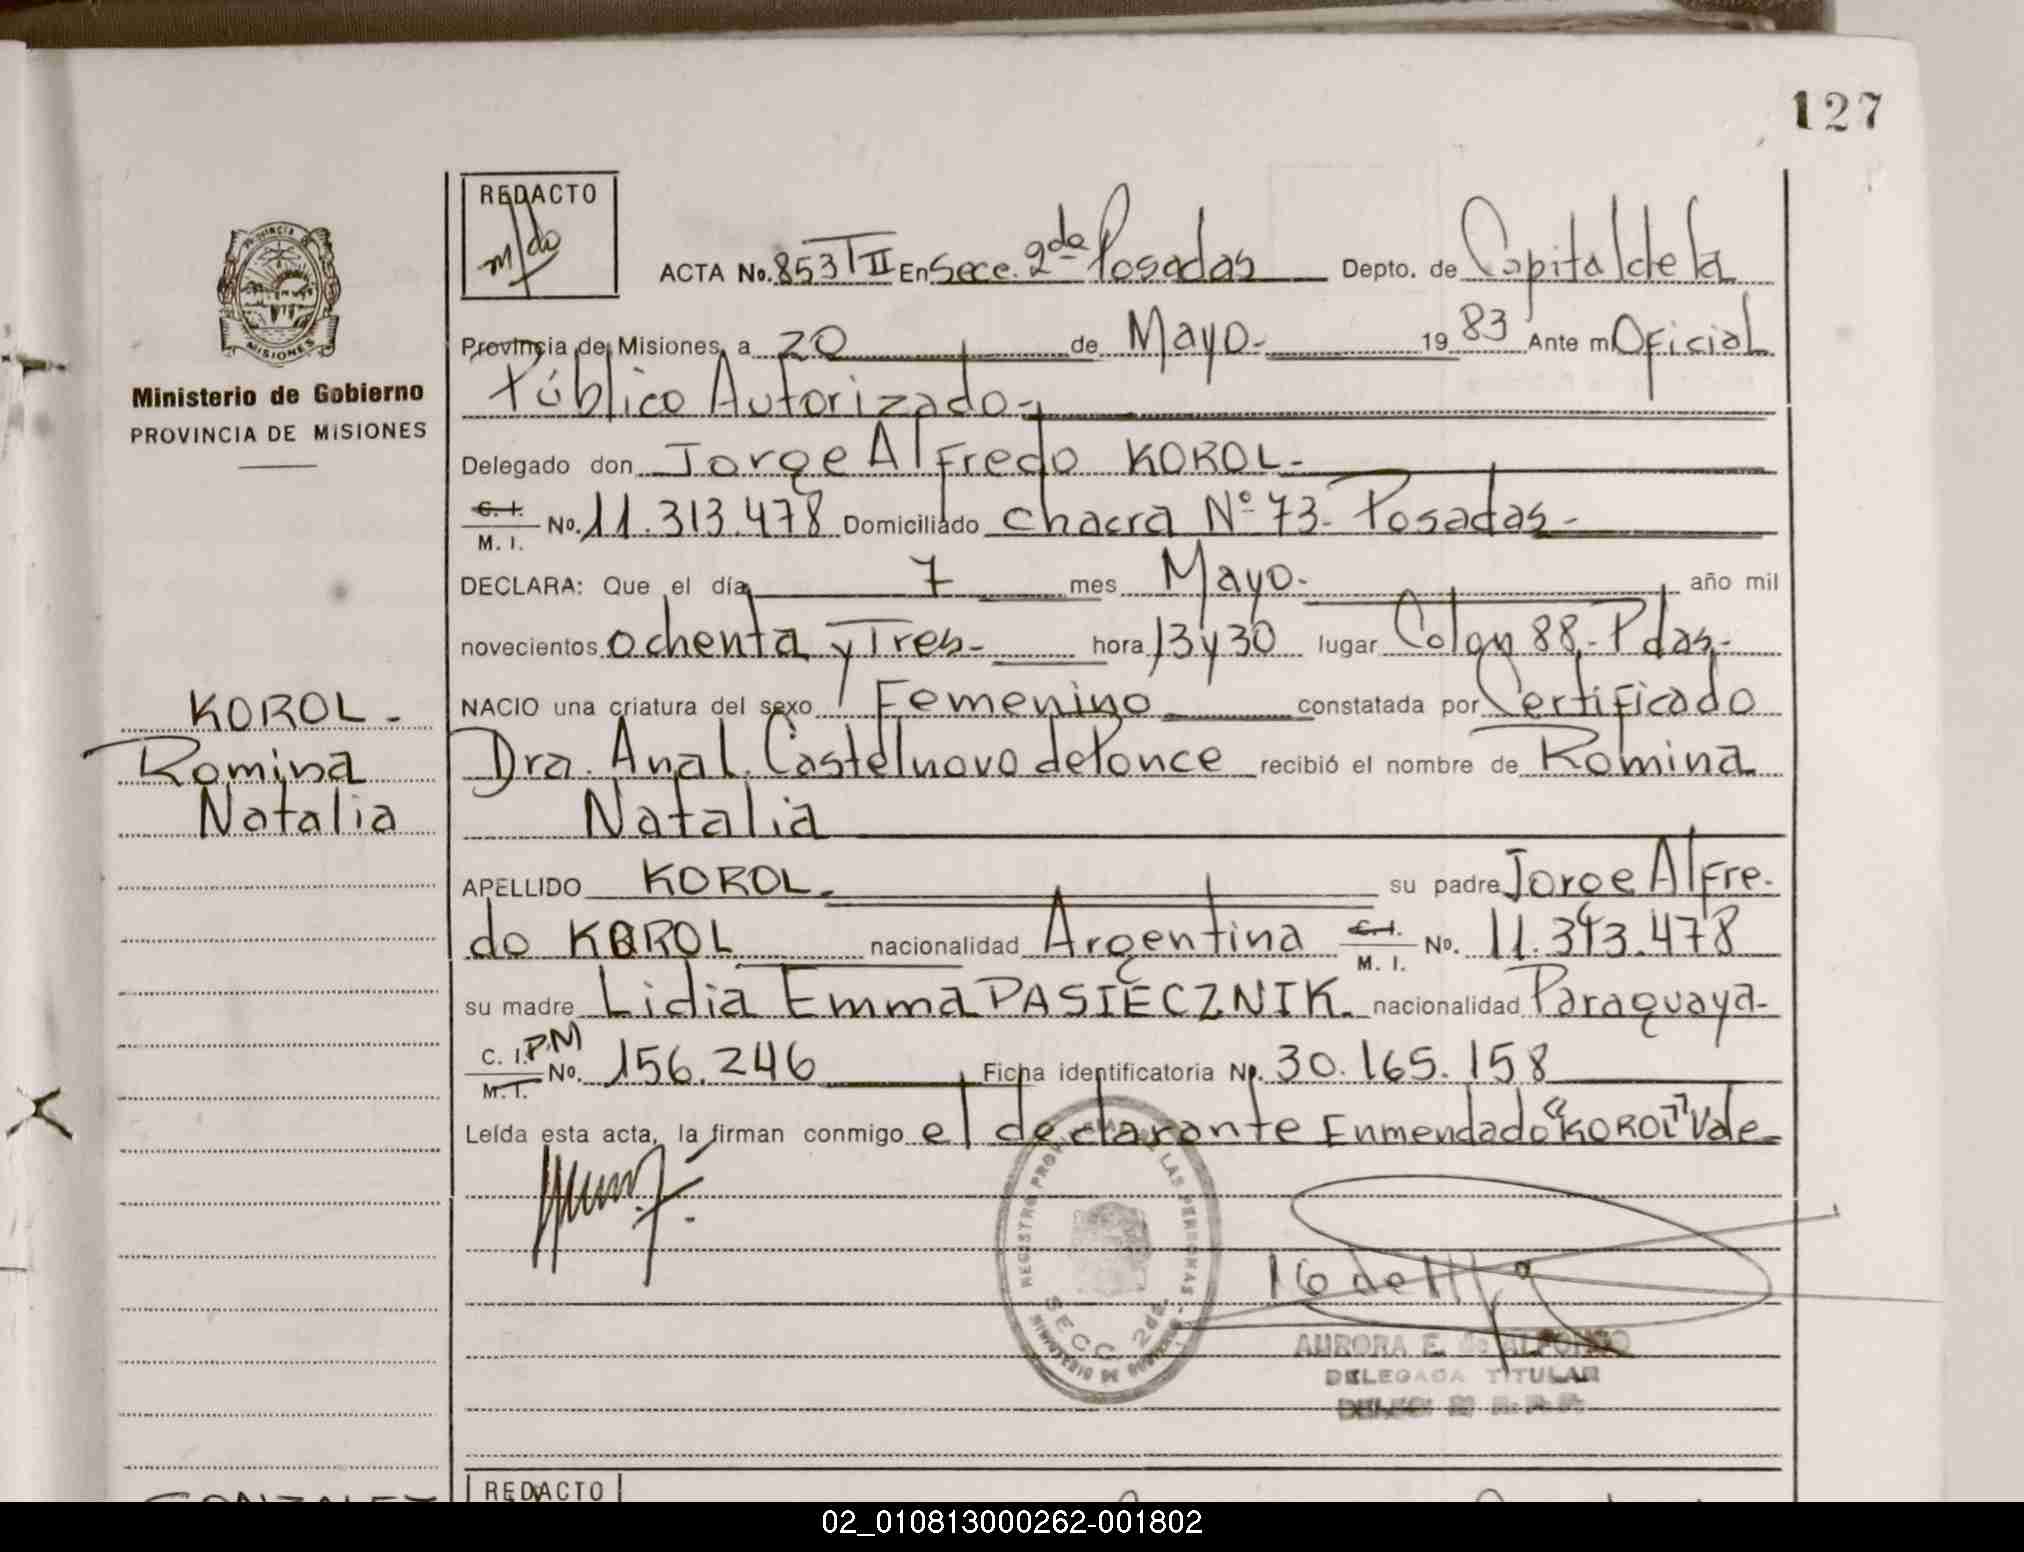 127
REDACTO
ACTA No. 853 T II En Secc. 2da Posadas Depto. de Capital de la
PROVINCIA
MISIONES
Provincia de Misiones, a 20 de Mayo- 1983 Ante mi Oficial
Ministerio de Gobierno
Público Autorizado-
PROVINCIA DE MISIONES
Delegado don Jorge Alfredo KOROL-
C. I.
M. I. No. 11.313.478 Domiciliado chacra Nº 73- Posadas-
DECLARA: Que el día 7 mes Mayo- año mil
novecientos ochenta y Tres- hora 13 y 30 lugar Colon 88.- Pdas.-
KOROL-
NACIO una criatura del sexo Femenino constatada por Certificado
Romina
Dra. Ana L. Castelnovo de Ponce recibió el nombre de Romina
Natalia
Natalia
APELLIDO KOROL- su padre Jorge Alfre-
do KOROL nacionalidad Argentina C. I.
M. I. No. 11.313.478
su madre Lidia Emma PASIECZNIK- nacionalidad Paraguaya-
C. I. P.M
M. I. No. 156.246 Ficha identificatoria No. 30.165.158
Leída esta acta, la firman conmigo el declarante Enmendado "KOROL" Vale-
REGISTRO PROVINCIAL DE LAS PERSONAS - MINISTERIO DE GOBIERNO
SECC. 2da.
AURORA E. de ALFONSO
DELEGADA TITULAR
REDACTO
02_010813000262-001802